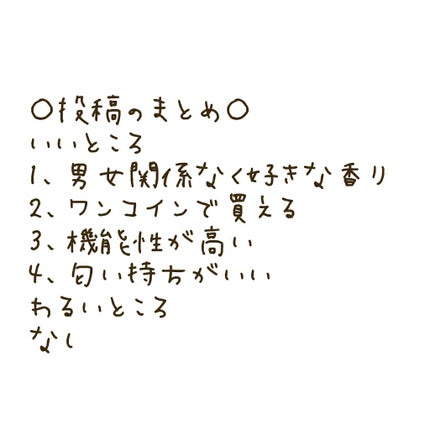 ○投稿のまとめ○
いいところ
1、男女関係なく好きな香り
2、ワンコインで買える
3、機能性が高い
4、匂い持ちがいい
わるいところ
なし